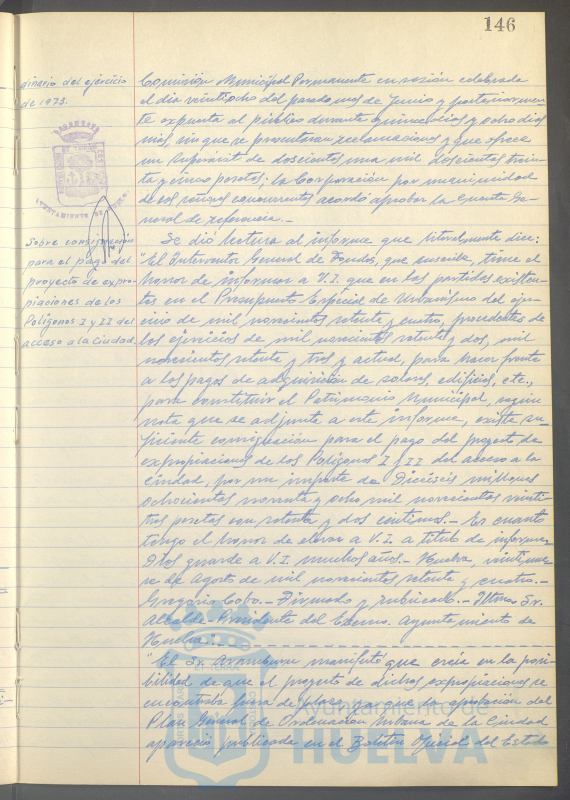 146
dinario del ejercicio
de 1973.
Comisión Municipal Permanente en sesión celebrada
el día veintiocho del pasado mes de Junio y posteriormen-
te expuesta al público durante quince días y ocho días
más, sin que se presentaran reclamaciones y que ofrece
un superávit de doscientas una mil doscientas trein-
ta y cinco pesetas; la Corporación por unanimidad
de los señores concurrentes acordó aprobar la Cuenta Ge-
neral de referencia.-
AYUNTAMIENTO DE
Sobre consignación
para el pago del
proyecto de expro-
piaciones de los
Polígonos I y II del
acceso a la Ciudad.
Se dió lectura al informe que literalmente dice:
"El Interventor General de Fondos, que suscribe, tiene el
honor de informar a V.I. que en las partidas existen-
tes en el Presupuesto Especial de Urbanismo del ejer-
cicio de mil novecientos setenta y cuatro, procedentes de
los ejercicios de mil novecientos setenta y dos, mil
novecientos setenta y tres y actual, para hacer frente
a los pagos de adquisición de solares, edificios, etc.,
para constituir el Patrimonio Municipal, según
nota que se adjunta a este informe, existe su-
ficiente consignación para el pago del proyecto de
expropiaciones de los Polígonos I y II del acceso a la
Ciudad, por un importe de Dieciséis millones
ochocientas noventa y ocho mil novecientas veinti-
trés pesetas con setenta y dos céntimos.- Es cuanto
tengo el honor de elevar a V.I. a título de informe.
Dios guarde a V.I. muchos años.- Huelva, veintinue-
ve de Agosto de mil novecientos setenta y cuatro.-
Gregorio Cobo.- Firmado y rubricado.- Iltmo. Sr.
Alcalde-Presidente del Excmo. Ayuntamiento de
Huelva".-
"El Sr. Aramburu manifestó que creía en la posi-
bilidad de que el proyecto de dichas expropiaciones se
encontraba fuera de plazo, ya que la aprobación del
Plan General de Ordenación Urbana de la Ciudad
apareció publicada en el Boletín Oficial del Estado
Ayuntamiento de
HUELVA